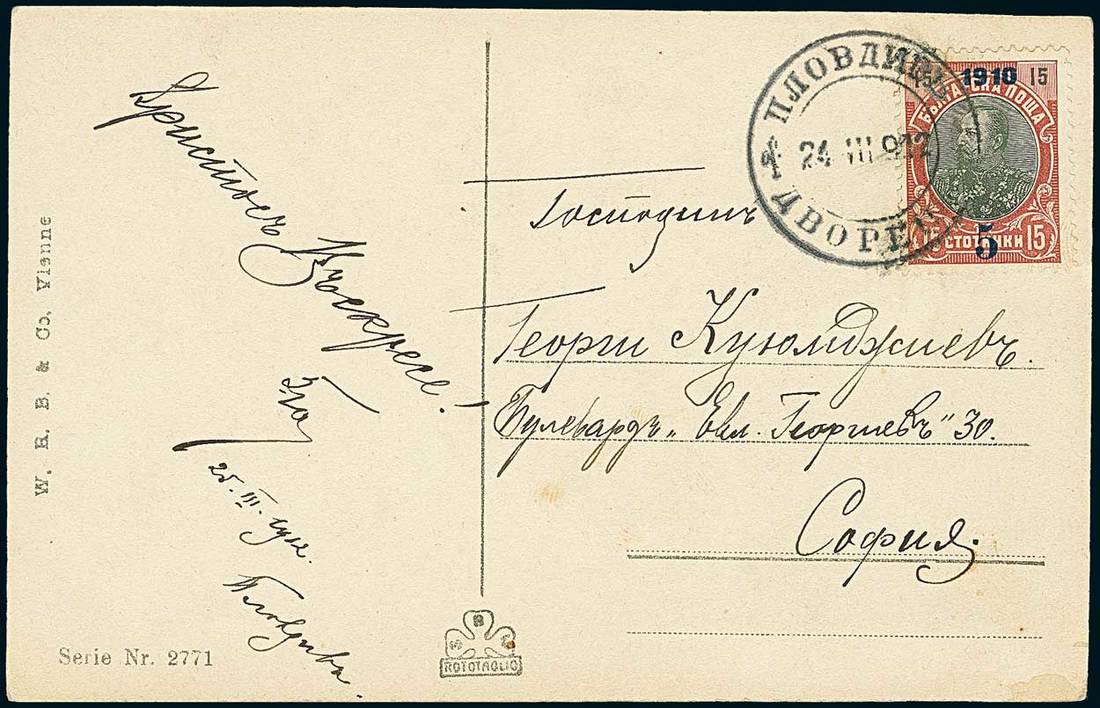 W. R. B. & Co, Vienne
Христосъ
Възкресе!
25. III. 912.
Пловдивъ.
Serie Nr. 2771
ROTOTAGLIO
ПЛОВДИВЪ
24 III 912
ДВОРЕЦ
1910
15
БЪЛГАРСКА ПОЩА
15 СТОТИНКИ 15
5
Господинъ
Георги Куюмджиевъ.
Булевардъ „Евл. Георгиевъ" 30.
София.